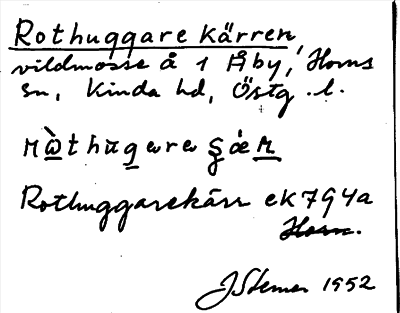 Rothuggare kärren,
vildmosse å 1 Åby, Horns
sn, Kinda hd, Östg. l.
Rothuggarekärr ek 794a
Horn.
JStemer 1952